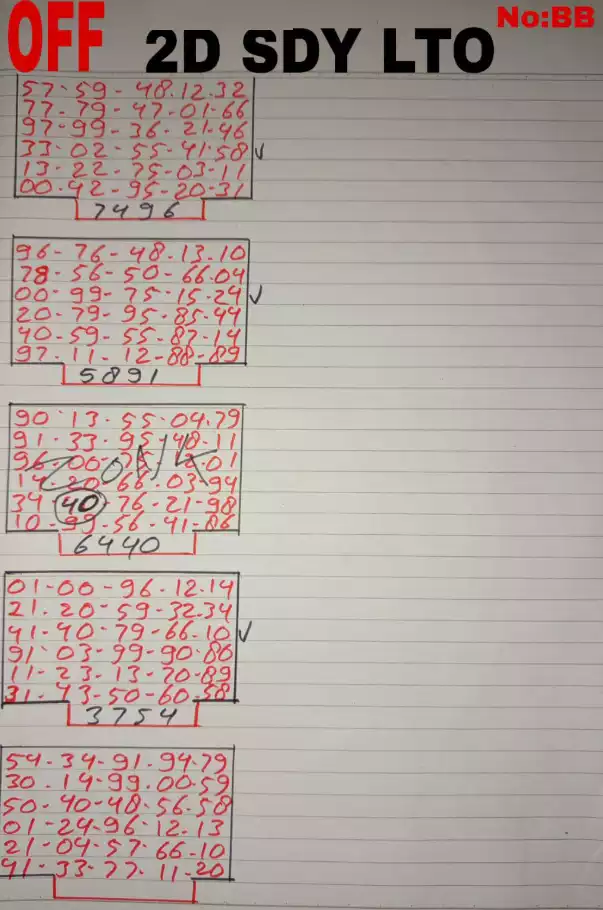 OFF 2D SDY LTO No:BB
57-59-48.12.32
77-79-47-01-66
97-99-36-21-46
33-02-55-41-58 ✓
13-22-75-03-11
00-42-95-20-31
7496
96-76-48.13.10
78-56-50-66.04
00-99-75-15-24 ✓
20-79-95-85-44
40-59-55-87-14
97-11-12-88-89
5891
90-13-55-04-79
91-33-95-48-11
96-00-75-12-01
ZONK
14-20-66-03-94
34 40-76-21-98
10-99-56-41-86
6440
01-00-96-12.14
21-20-59-32.34
41-40-79-66.10 ✓
91-03-99-90-80
11-23-13-70-89
31-43-50-60-58
3754
54-34-91-94-79
30-14-99.00.59
50-40-48-56-58
01-24-96-12.13
21-04-57-66-10
41-33-77-11-20